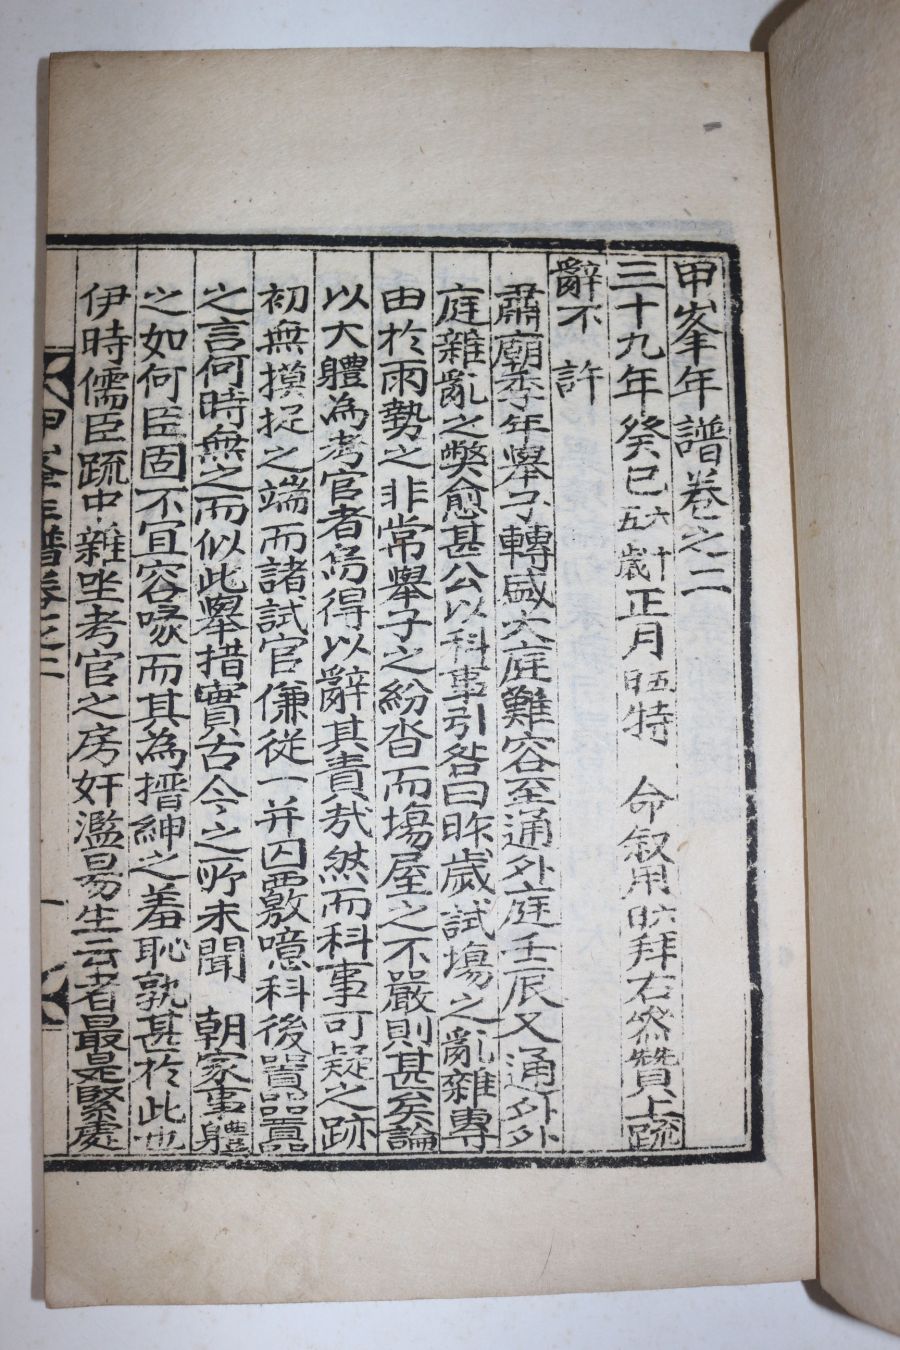 甲峯年譜卷之二
三十九年癸巳五十六歲正月五日特 命叙用六日拜右叅贊上疏
辭不 許
肅廟季年擧子轉盛大庭難容至通外庭壬辰又通外外
庭雜亂之獘愈甚公以科事引咎曰昨歲試場之亂雜專
由於雨勢之非常擧子之紛沓而塲屋之不嚴則甚矣論
以大體為考官者烏得以辭其責㢤然而科事可疑之跡
初無摸捉之端而諸試官傔從一并囚覈噫科後嘖嘖囂囂
之言何時無之而似此擧措實古今之所未聞 朝家事體
之如何臣固不宜容喙而其為搢紳之羞恥孰甚於此也
伊時儒臣䟽中雜坐考官之房奸濫易生云者最是緊處
甲峯年譜卷之二
一